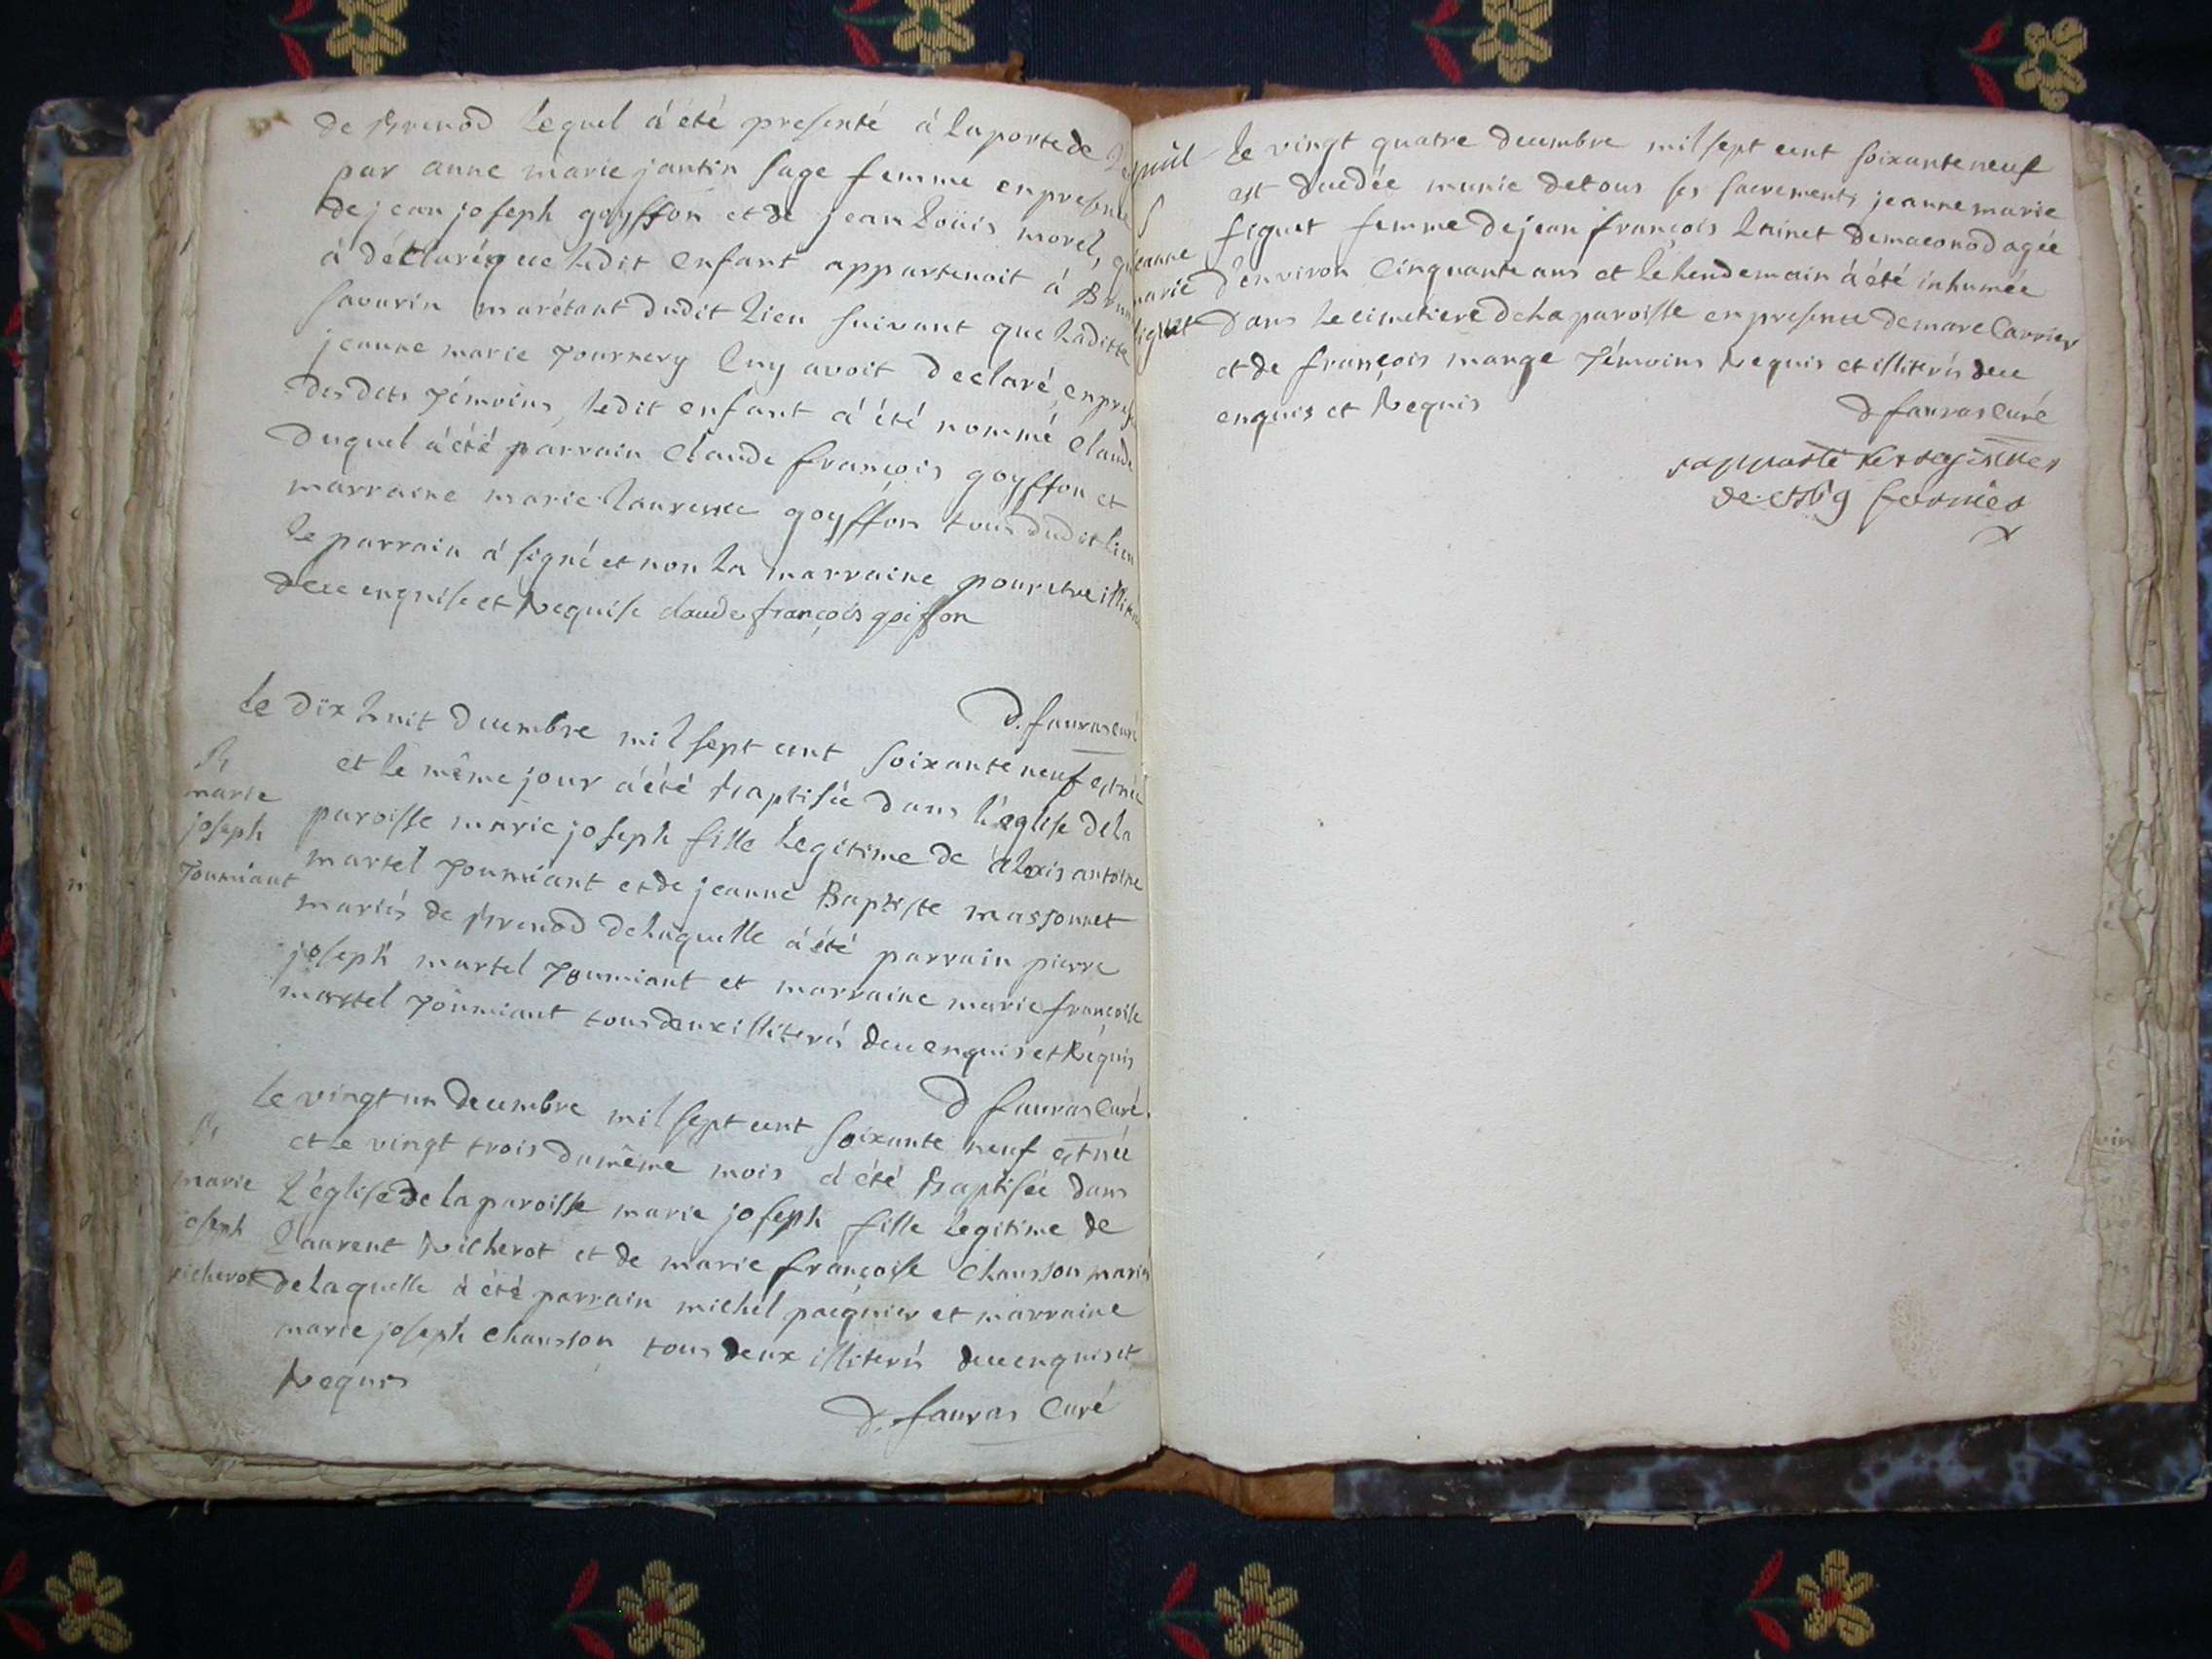 de Brenod lequel à été presenté à la porte de
par anne marie jantin sage femme en presence
de jean joseph goyffon et de jean loüis morel,
à déclaré que ledit enfant appartenoit à
savarin marétant dudit lieu suivant que laditte
jeanne marie Tournery luy avoit declaré, en
desdets Témoins, ledit enfant à été nommé claude
duquel à été parrain claude françois goyffon et
marraine marie laurence goyffon tous dudit lieu
le parrain à signé et non la marraine pour etre
deue enquise et Requise claude françois goiffon
D. fauras curé
le dix huit decembre mil sept cent soixante neuf est née
B
et le même jour à été Baptisée dans l'église de la
marie
paroisse marie joseph fille legitime de alexis antoine
joseph
martel Toumiant et de jeanne Baptiste massonnet
Toumiant
mariés de Brenod de laquelle à été parrain pierre
joseph martel Toumiant et marraine marie françoise
martel Toumiant tous deux illiterés deue enquis et Requis
D fauras Curé
le vingt un decembre mil sept cent soixante neuf est née
B
et le vingt trois du même mois à été Baptisée dans
marie
l'église de la paroisse marie joseph fille legitime de
joseph
laurent Richerot et de marie françoise Chausson mariés
richerot
de laquelle à été parrain michel paignier et marraine
marie joseph chausson tous deux illiterés deue enquis et
Requis
D. fauras Curé
le vingt quatre decembre mil sept cent soixante neuf
S
est decedée munie de tous ses sacrements jeanne marie
jeanne
figuet femme de jean françois humet de maconod agée
marie
d'environ Cinquante ans et le lendemain à été inhumée
figuet
dans le cimetiere de la paroisse en presence de marc Carrier
et de françois mange Témoins Requis et illiterés deue
enquis et Requis
D fauras Curé